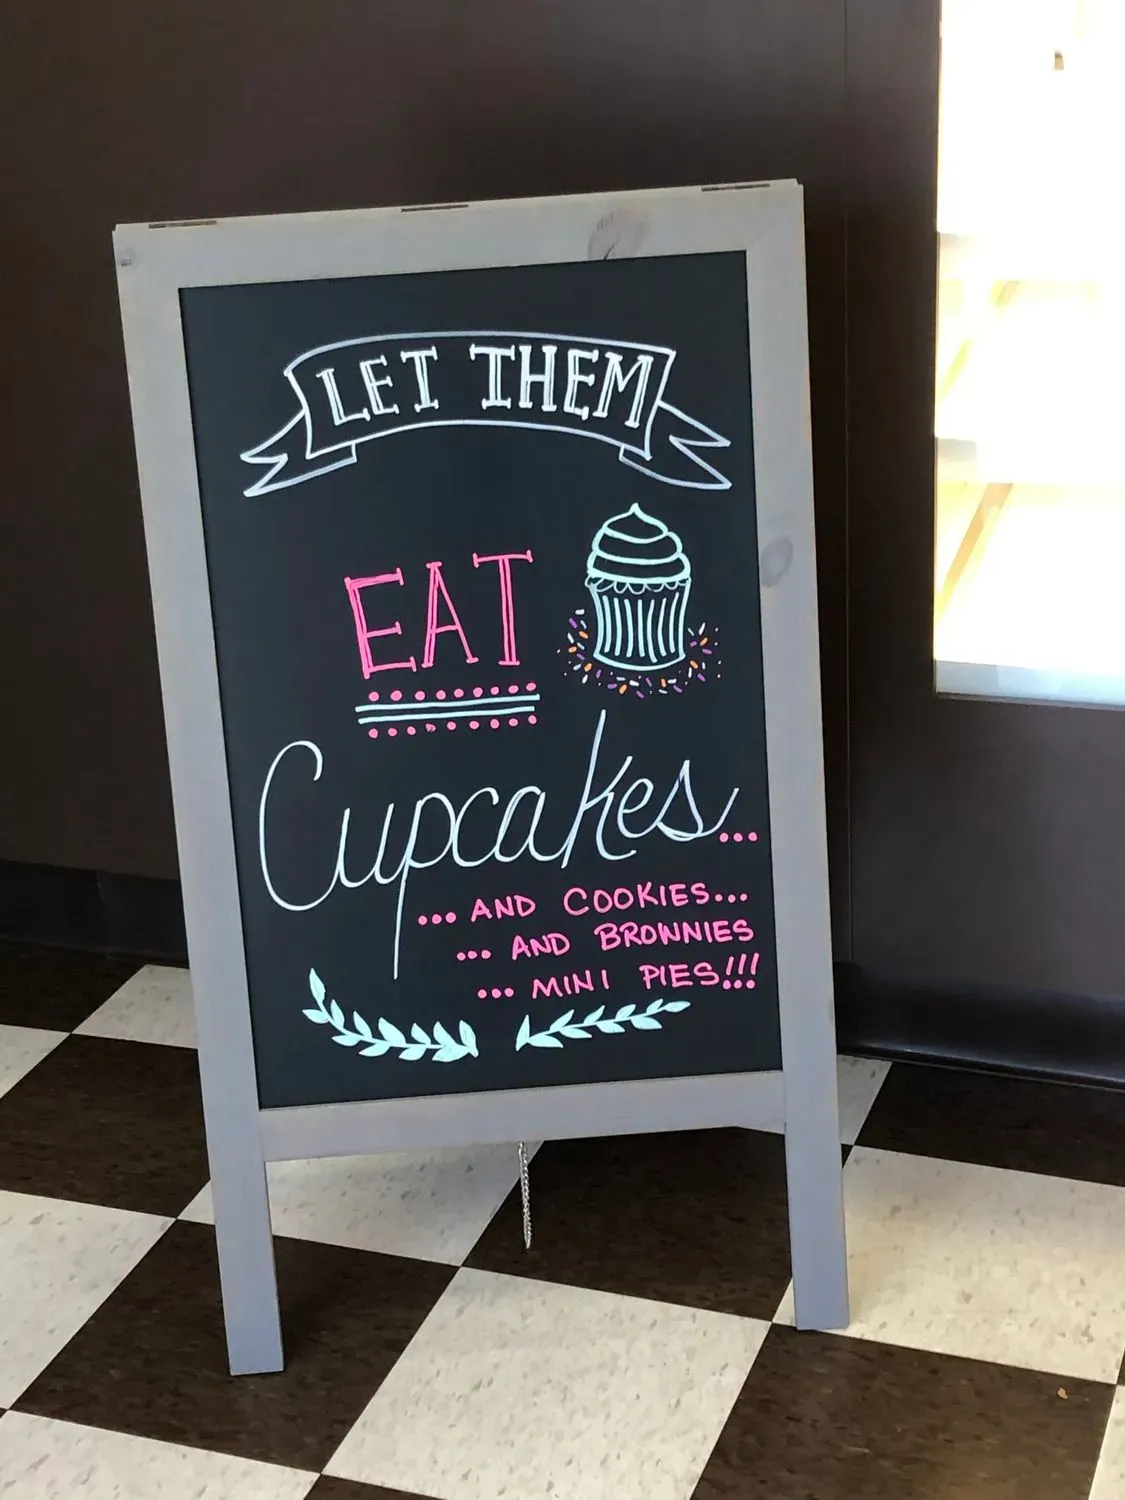 LET THEM
EAT
Cupcakes...
... AND COOKIES...
... AND BROWNIES
... MINI PIES!!!